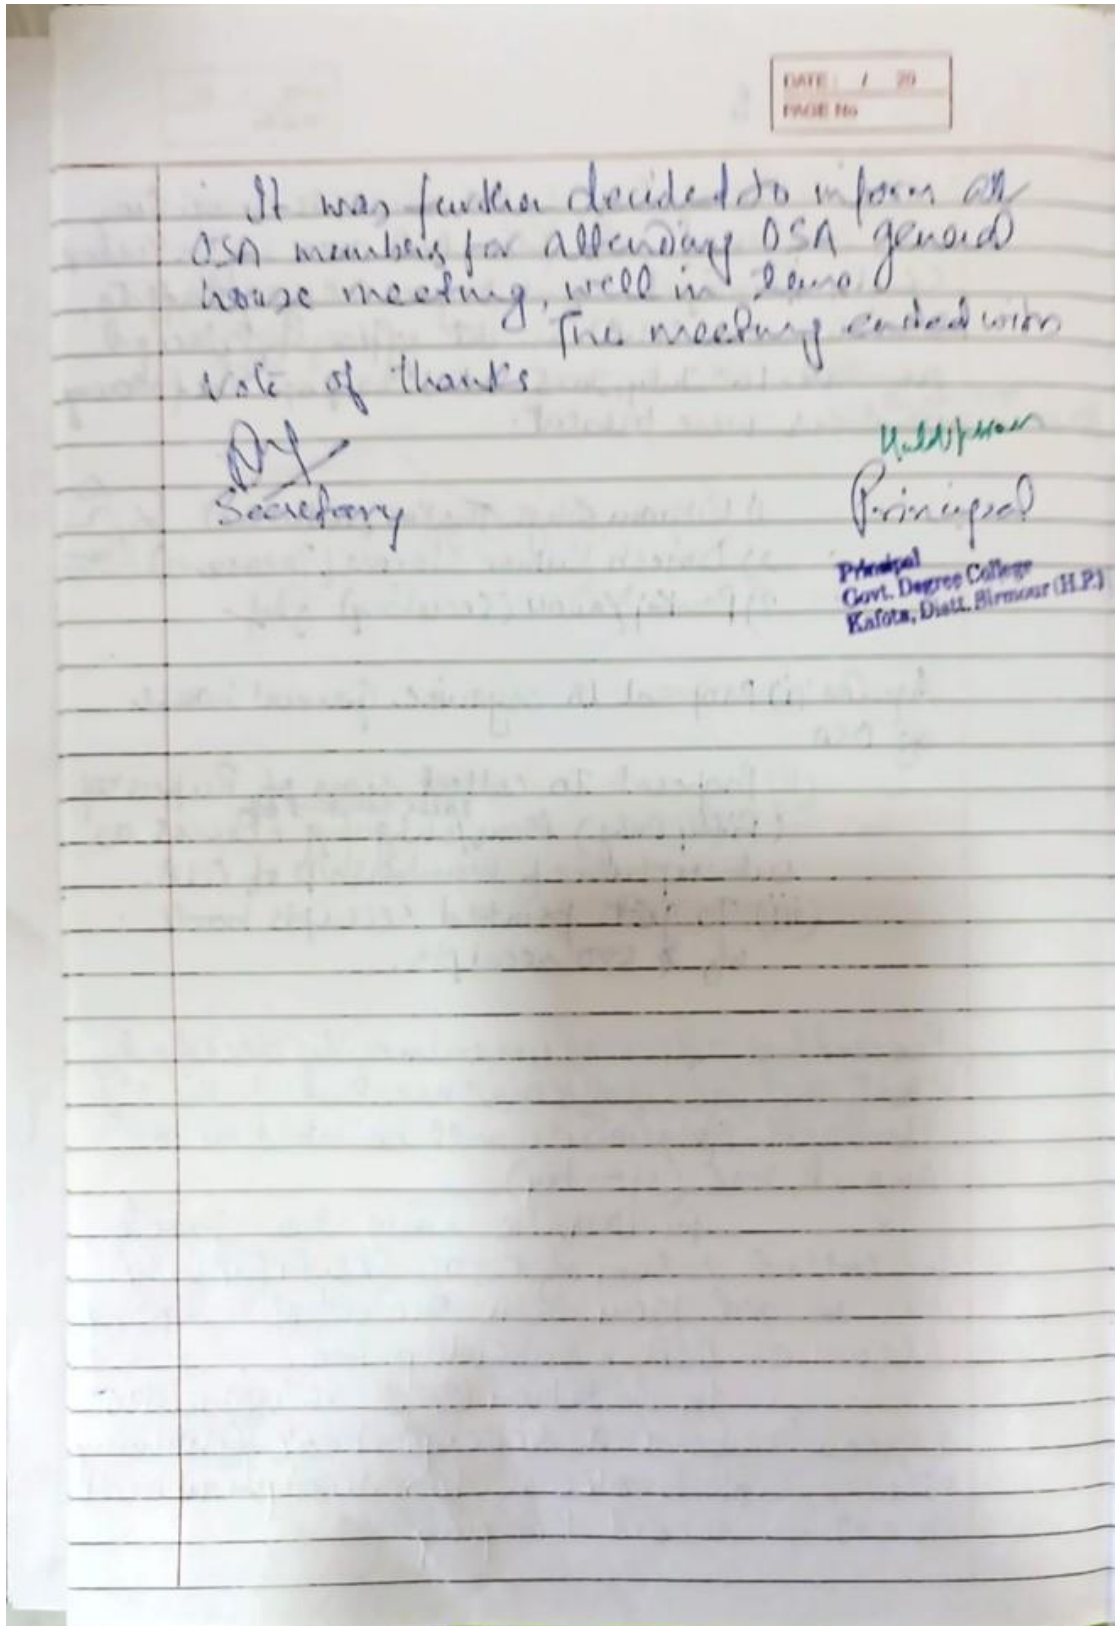 DATE: / 20
PAGE No
It was further decided to inform all
OSA members for attending OSA general
house meeting, well in time
The meeting ended with
Vote of thanks
Secretary
Principal
Principal
Govt. Degree College
Kafota, Distt. Sirmour (H.P.)